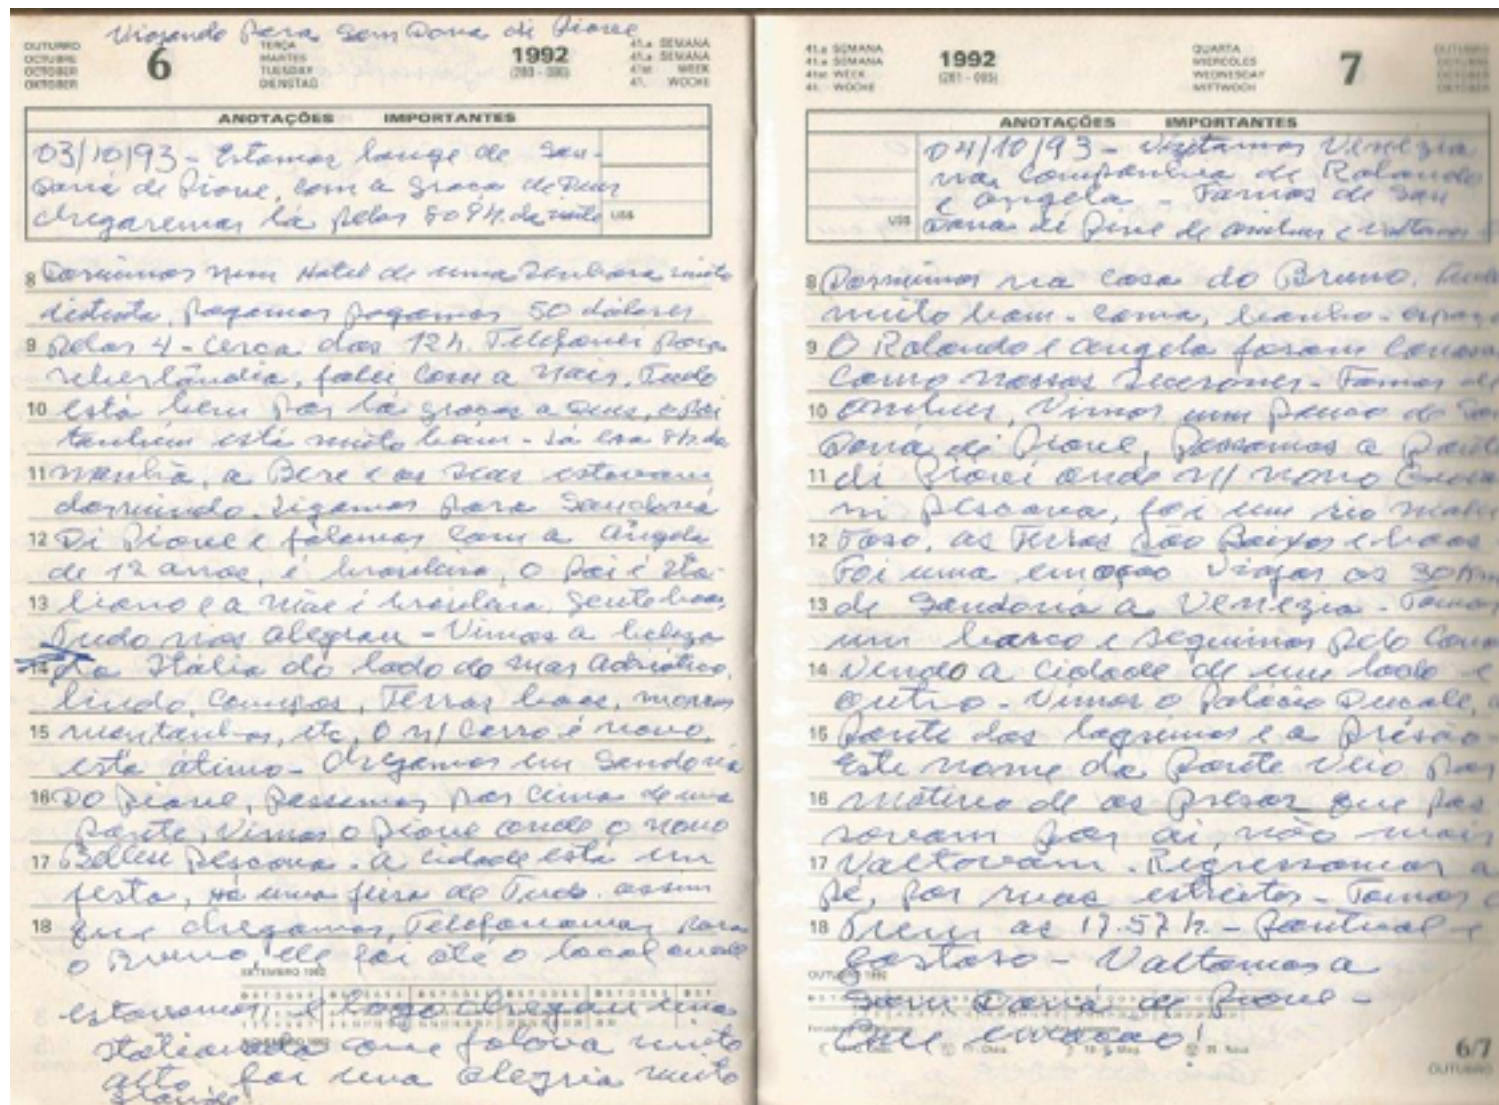 Viajando para Sam Dona di Piave
OUTUBRO
OCTUBRE
OCTOBER
OKTOBER
6
TERÇA
MARTES
TUESDAY
DIENSTAG
1992
(280 - 086)
41.a SEMANA
41.a SEMANA
41st WEEK
41. WOCHE
ANOTAÇÕES IMPORTANTES
03/10/93 - Estamos longe de San-
Doná de Piave, com a graça de Deus
chegaremos lá pelas 8 o 9 h. da noite
US$
8 Dormimos num Hotel de uma Senhora muito
distinta, pagamos pagamos 50 dólares
9 pelas 4 - Cerca das 12 h. Telefonei para
Uberlândia, falei com a Nair. Tudo
10 está bem por lá graças a Deus, o pai
também está muito bem - Lá era 8 h. da
11 manhã, a Bere e os seus estavam
dormindo. Ligamos para Sandoná
12 Di Piave e falamos com a Ângela
de 12 anos, é brasileira, o pai é Ita-
13 liano e a mãe é brasileira. Gente boa,
Tudo nos alegrou - Vimos a beleza
14 da Itália do lado do mar Adriático,
lindo, campos, Terras boas, morros
15 montanhas, etc. O n/ carro é novo,
está ótimo - Chegamos em Sandoná
16 DO Piave, passamos por cima de uma
ponte, vimos o Piave onde o nono
17 Bellese pescava. A cidade está em
festa, há uma feira de Tudo. assim
18 que chegamos, Telefonamos para
o Bruno, ele foi até o local onde
SETEMBRO 1992
estavamos e logo chegou uma
Italianada que falava muito
alto, foi uma alegria muito
grande!
41.a SEMANA
41.a SEMANA
41st WEEK
41. WOCHE
1992
(281 - 085)
QUARTA
MIERCOLES
WEDNESDAY
MITTWOCH
7
OUTUBRO
OCTUBRE
OCTOBER
OKTOBER
ANOTAÇÕES IMPORTANTES
04/10/93 - Visitamos Venezia
na companhia de Rolando
e Angela - Fomos de San
US$
Dona di Piave de onibus e voltamos
8 Dormimos na casa do Bruno,
muito bom - cama, banho -
9 O Rolando e Angela foram conosco
como nossos Cicerones - Fomos de
10 Onibus, Vimos um pouco de San
Doná di Piave, passamos a ponte
11 di Piave onde n/ nono
ni pescava, foi um rio
12 as Terras são Baixas e boas
Foi uma emoção viajar os 30 km
13 de Sandoná a Venezia - Tomamos
um barco e seguimos pelo Canal
14 Vendo a cidade de um lado e
outro - Vimos o Palácio Ducale, a
15 Ponte das lagrimas e a Prisão -
Este nome da Ponte veio por
16 motivo de os presos que pas
savam por ai, não mais
17 Valtovam. Regressamos a
pé, por ruas estreitas - Tomamos o
18 Trem as 17.57 h. - Pontual e
Gostoso - Valtamos a
OUTUBRO 1992
Sam Doná de Piave -
Que emoção!
6/7
OUTUBRO